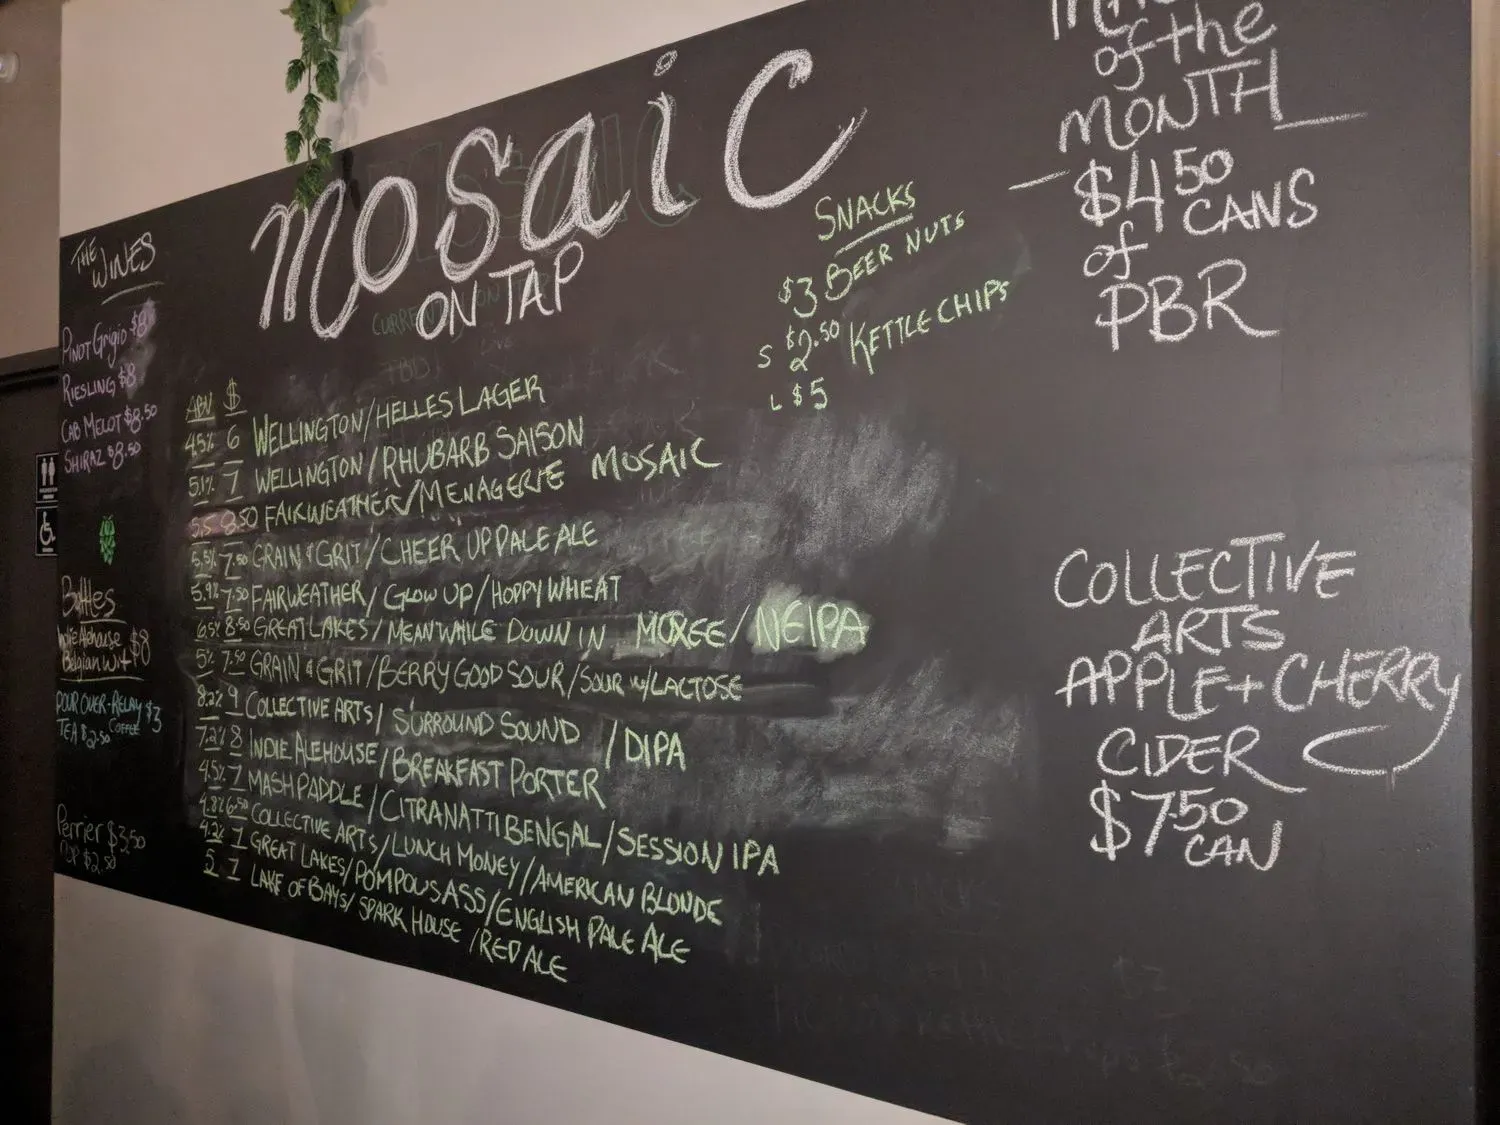 MOSAIC
ON TAP
THE
WINES
PINOT Grigio $8
RIESLING $8
CAB MELOT $8.50
SHIRAZ $8.50
Bottles
Indie Alehouse
Belgian Wit $8
POUR OVER-RELAY $3
COFFEE
TEA $2.50
Perrier $3.50
POP $2.50
ABV $
4.5% 6 WELLINGTON/HELLES LAGER
5.1% 7 WELLINGTON/RHUBARB SAISON
5.5 8.50 FAIRWEATHER/MENAGERIE MOSAIC
5.5% 7.50 GRAIN & GRIT/CHEER UP PALE ALE
5.9% 7.50 FAIRWEATHER/GLOW UP/HOPPY WHEAT
6.5% 8.50 GREAT LAKES/MEANWHILE DOWN IN MOXEE/NEIPA
5% 7.50 GRAIN & GRIT/BERRY GOOD SOUR/SOUR W/LACTOSE
8.2% 9 COLLECTIVE ARTS/SURROUND SOUND /DIPA
7.2% 8 INDIE ALEHOUSE/BREAKFAST PORTER
4.5% 7 MASH PADDLE/CITRANATTI BENGAL/SESSION IPA
4.8% 6.50 COLLECTIVE ARTS/LUNCH MONEY/AMERICAN BLONDE
4.2% 7 GREAT LAKES/POMPOUS ASS/ENGLISH PALE ALE
5 7 LAKE OF BAYS/SPARK HOUSE/RED ALE
SNACKS
$3 BEER NUTS
S $2.50 KETTLE CHIPS
L $5
of the
MONTH
$4.50
CANS
of
PBR
COLLECTIVE
ARTS
APPLE+CHERRY
CIDER
$7.50
CAN